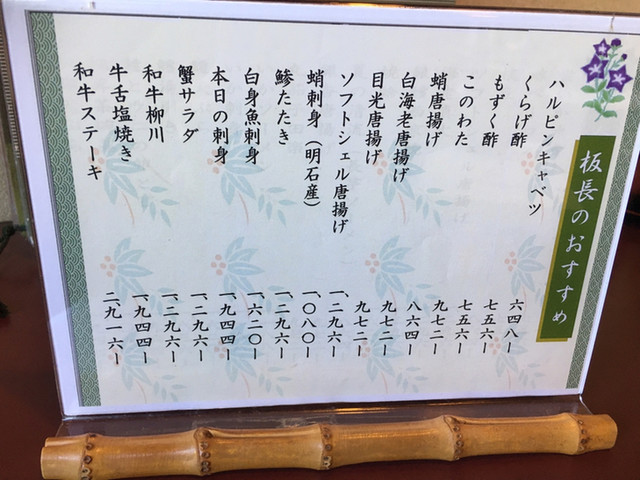 板長のおすすめ
ハルピンキャベツ 六四八ー
くらげ酢 七五六ー
もずく酢 七五六ー
このわた 九七二ー
蛸唐揚げ 八六四ー
白海老唐揚げ 九七二ー
目光唐揚げ 九七二ー
ソフトシェル唐揚げ 一、二九六ー
蛸刺身（明石産） 一、〇八〇ー
鯵たたき 一、二九六ー
白身魚刺身 一、六二〇ー
本日の刺身 一、九四四ー
蟹サラダ 一、二九六ー
和牛柳川 一、二九六ー
牛舌塩焼き 一、九四四ー
和牛ステーキ 二、九一六ー